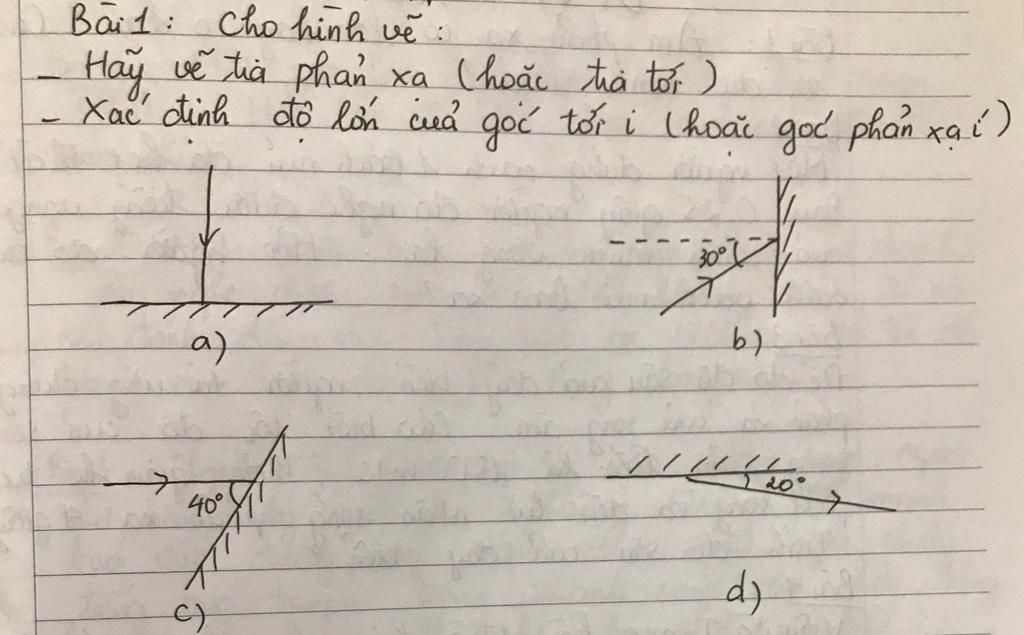 Bài 1: Cho hình vẽ:
- Hãy vẽ tia phản xạ (hoặc tia tới)
- Xác định độ lớn của góc tới i (hoặc góc phản xạ i')
a)
30°
b)
40°
c)
20°
d)